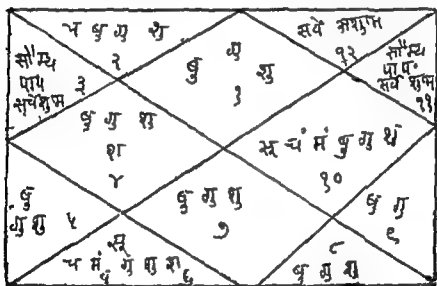 च बु गु शु
२
सर्वे अशुभ
१२
सौम्य
पाप
सर्वेशुभ
३
बु गु
शु
१
सौम्य
पाप
सर्वे शुभ
११
बु गु शु
श
४
सू चं मं बु गु श
१०
बु
गु शु ५
बु गु शु
७
बु गु
९
सू
च मं बु गु शु श ६
८
बु गु शु